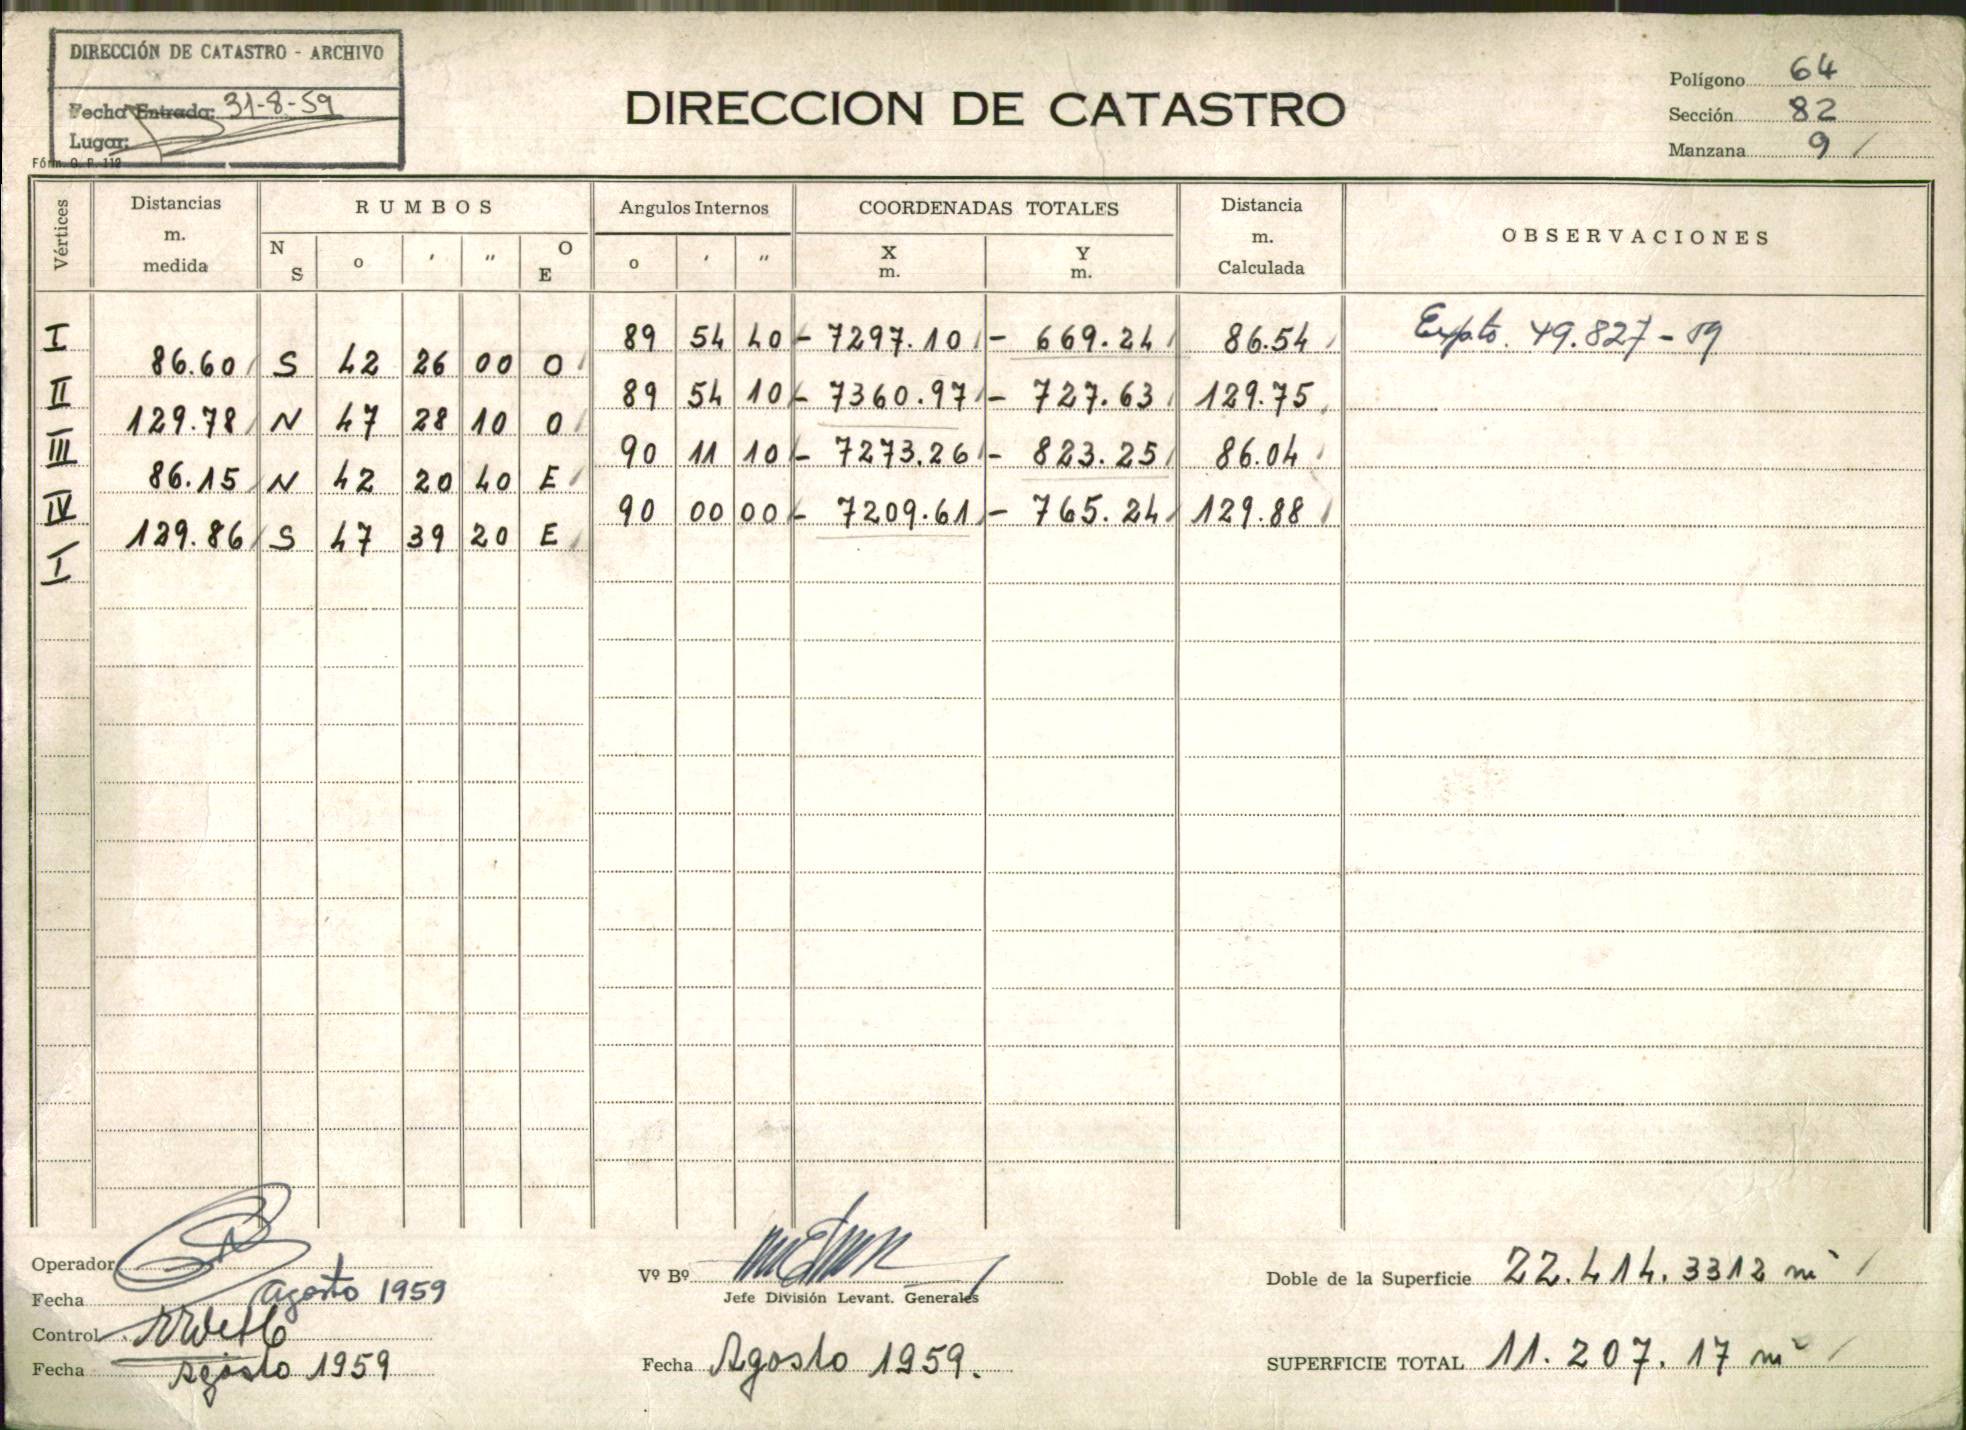 DIRECCIÓN DE CATASTRO - ARCHIVO
Fecha Entrada: 31-8-59
Lugar:
Fórm. O. P. 112
DIRECCION DE CATASTRO
Polígono 64
Sección 82
Manzana 9 /
Vértices Distancias m. medida RUMBOS Angulos Internos COORDENADAS TOTALES Distancia m. Calculada OBSERVACIONES
N S o ' " O E o ' " X m. Y m.
I 89 54 40 - 7297.10 - 669.24 86.54 Expto. 49.827-59
86.60 S 42 26 00 O
II 89 54 10 - 7360.97 - 727.63 129.75
129.78 N 47 28 10 O
III 90 11 10 - 7273.26 - 823.25 86.04
86.15 N 42 20 40 E
IV 90 00 00 - 7209.61 - 765.24 129.88
129.86 S 47 39 20 E
I
Operador
Fecha agosto 1959
Control
Fecha Agosto 1959
Vº Bº
Jefe División Levant. Generales
Fecha Agosto 1959.
Doble de la Superficie 22.414.3312 m² /
SUPERFICIE TOTAL 11.207.17 m² /